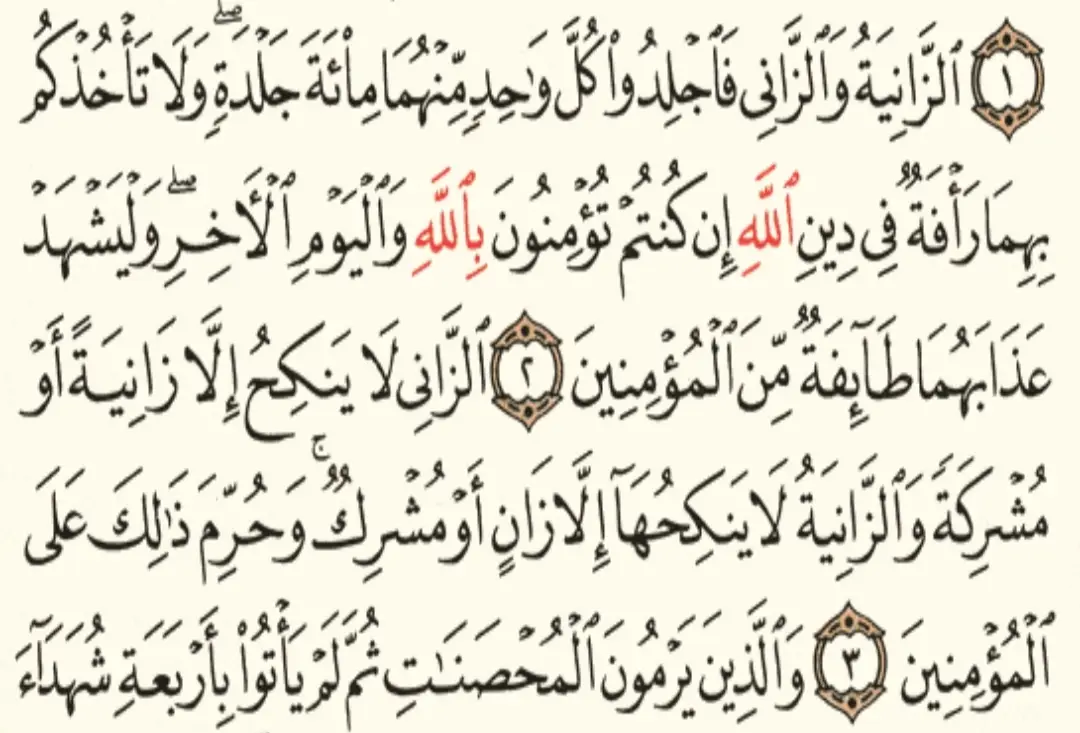 ١ ٱلزَّانِيَةُ وَٱلزَّانِى فَٱجْلِدُوا۟ كُلَّ وَٰحِدٍ مِّنْهُمَا مِا۟ئَةَ جَلْدَةٍ ۖ وَلَا تَأْخُذْكُم
بِهِمَا رَأْفَةٌ فِى دِينِ ٱللَّهِ إِن كُنتُمْ تُؤْمِنُونَ بِٱللَّهِ وَٱلْيَوْمِ ٱلْـَٔاخِرِ ۖ وَلْيَشْهَدْ
عَذَابَهُمَا طَآئِفَةٌ مِّنَ ٱلْمُؤْمِنِينَ ٢ ٱلزَّانِى لَا يَنكِحُ إِلَّا زَانِيَةً أَوْ
مُشْرِكَةً وَٱلزَّانِيَةُ لَا يَنكِحُهَآ إِلَّا زَانٍ أَوْ مُشْرِكٌ ۚ وَحُرِّمَ ذَٰلِكَ عَلَى
ٱلْمُؤْمِنِينَ ٣ وَٱلَّذِينَ يَرْمُونَ ٱلْمُحْصَنَـٰتِ ثُمَّ لَمْ يَأْتُوا۟ بِأَرْبَعَةِ شُهَدَآءَ